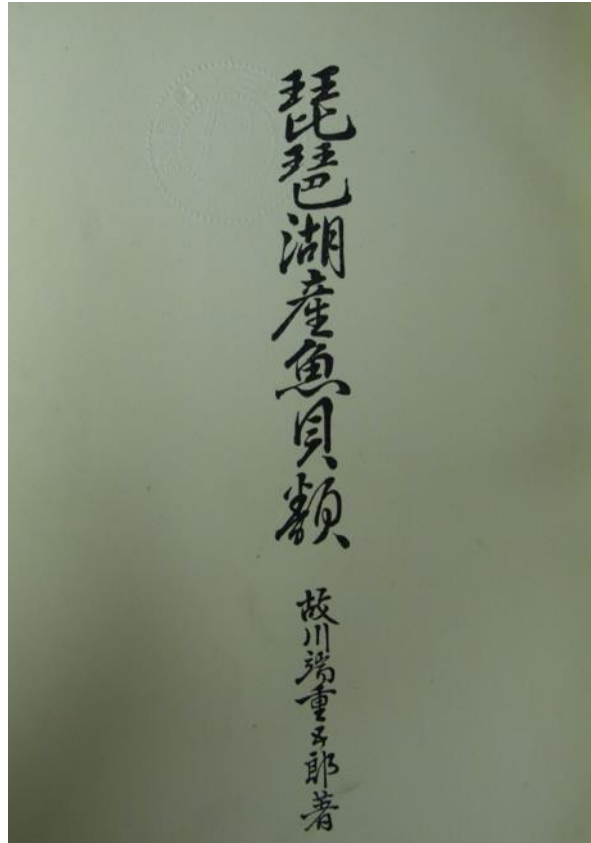 琵琶湖産魚貝類
故川端重五郎著